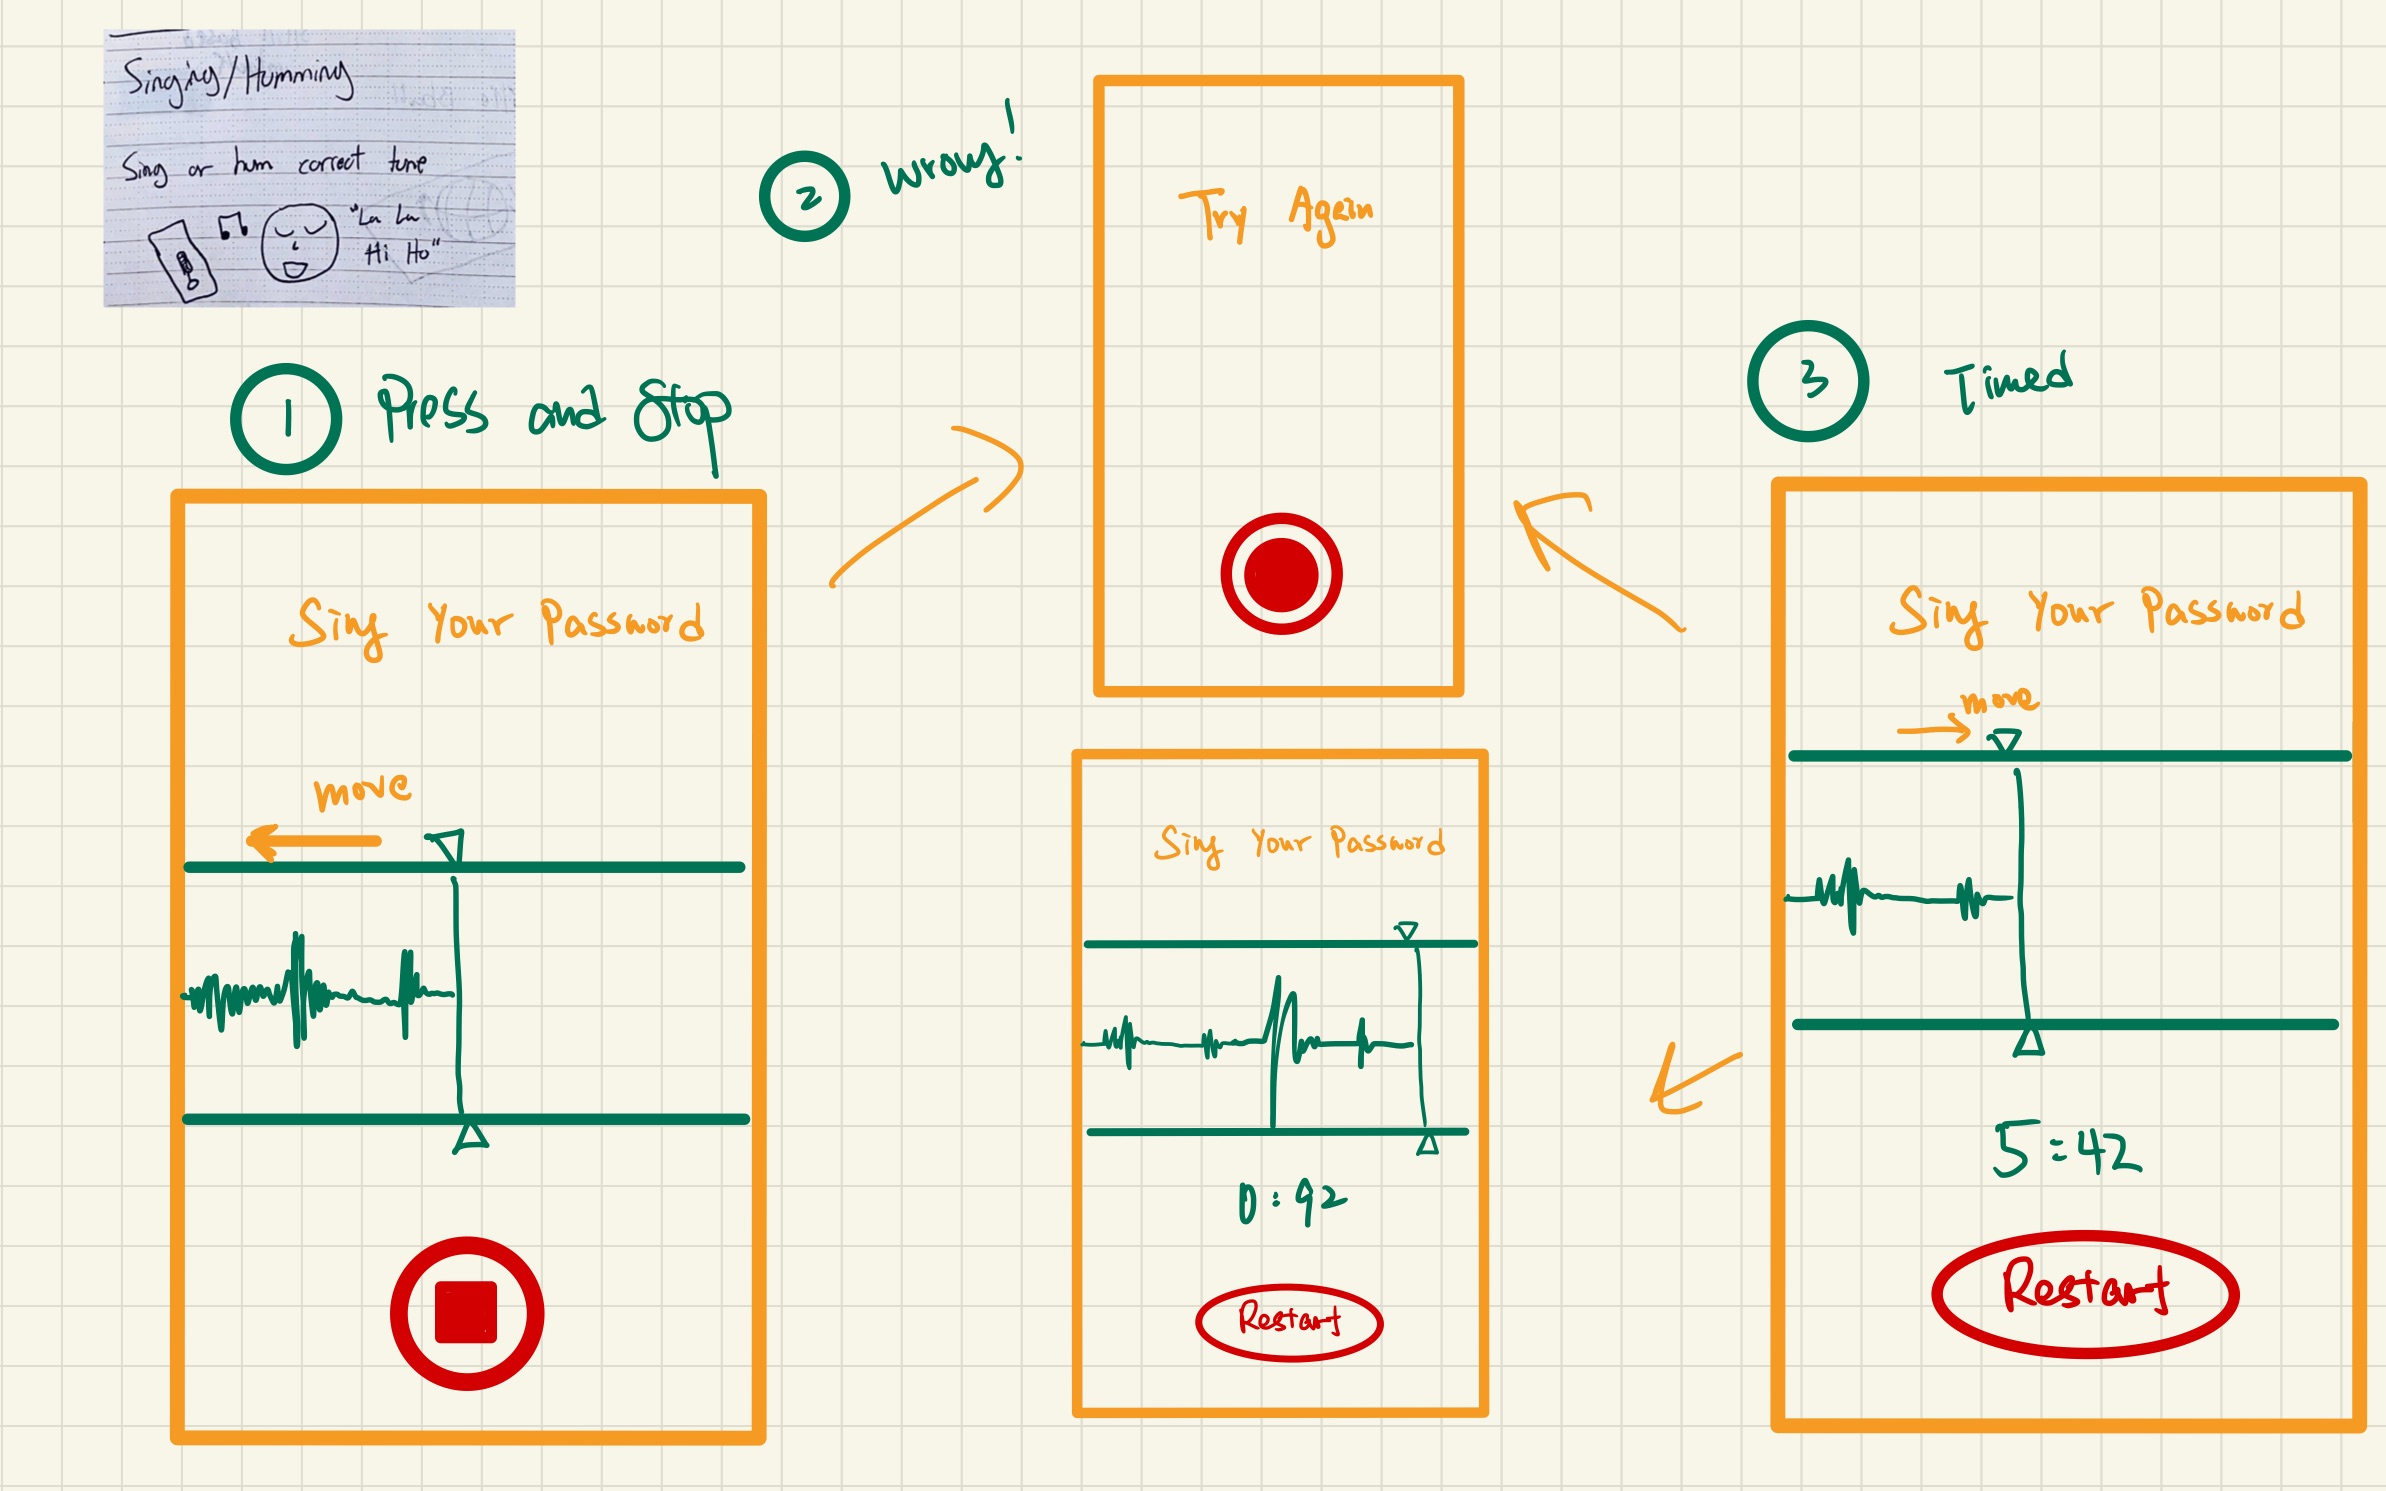 Singing/Humming
Sing or hum correct tune
"La La
Hi Ho"
1 Press and Stop
Sing Your Password
move
2 Wrong!
Try Again
3 Timed
Sing Your Password
move
5:42
Restart
Sing Your Password
0:92
Restart